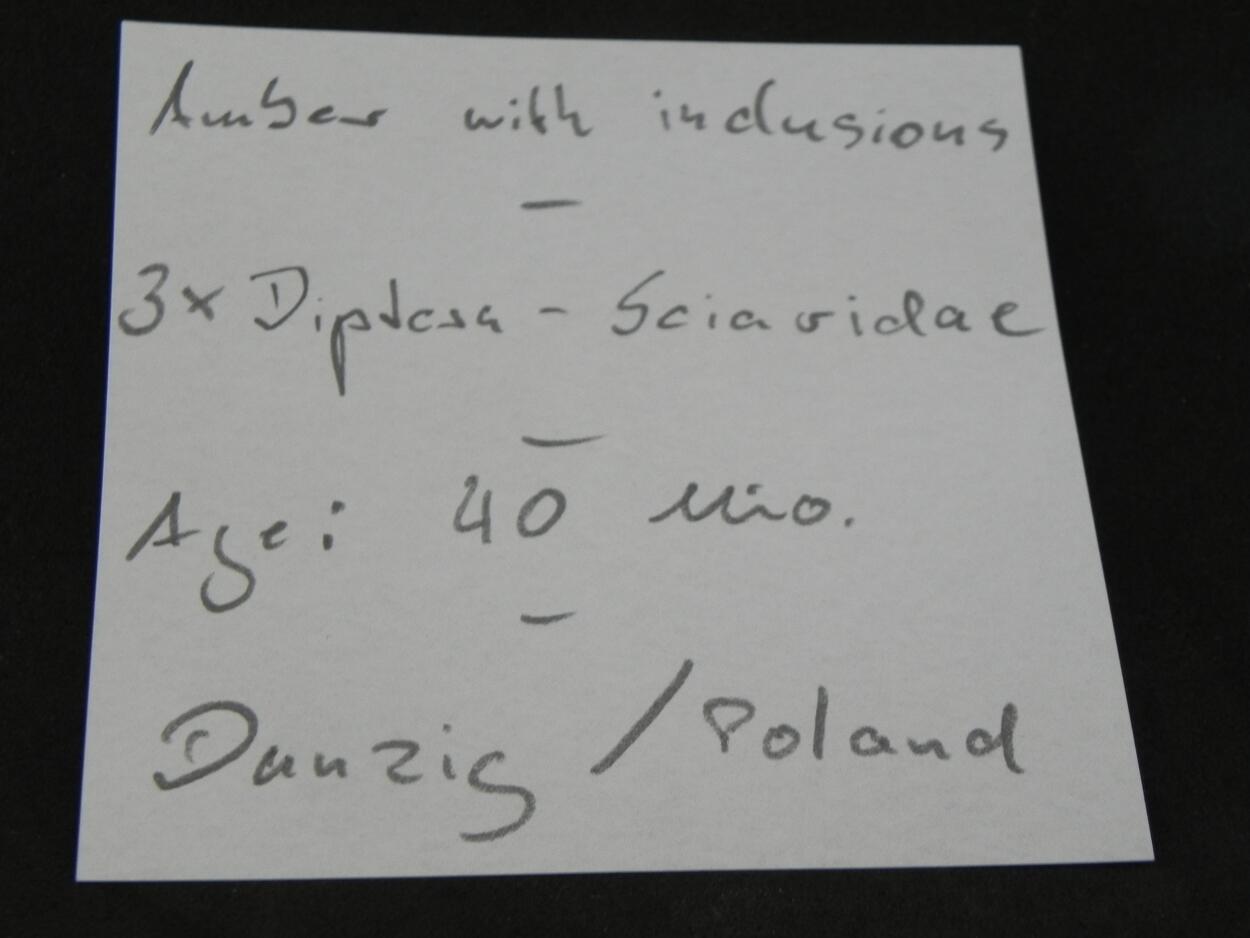 Amber with inclusions
–
3x Diptera - Sciaridae
–
Age: 40 Mio.
–
Danzig / Poland